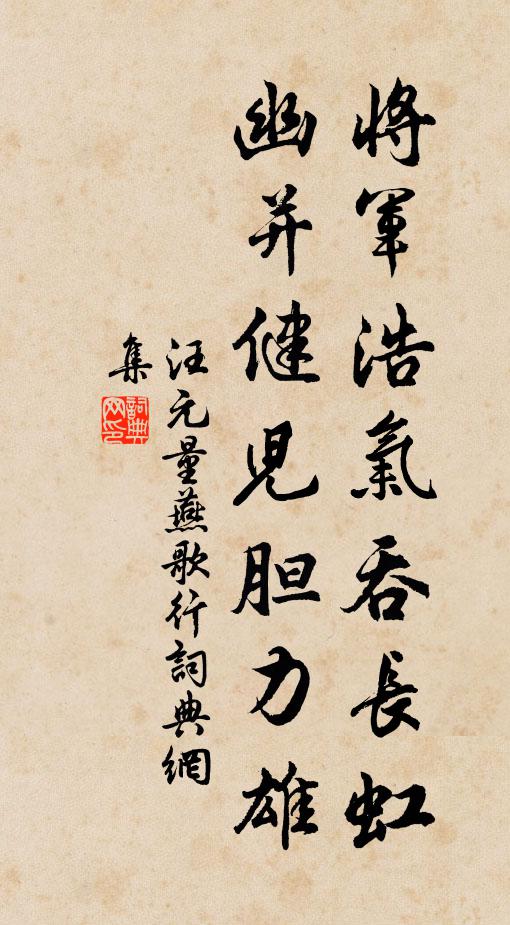 將軍浩氣吞長虹
幽并健児胆力雄
汪元量燕歌行詞典網
集
詞典
网印